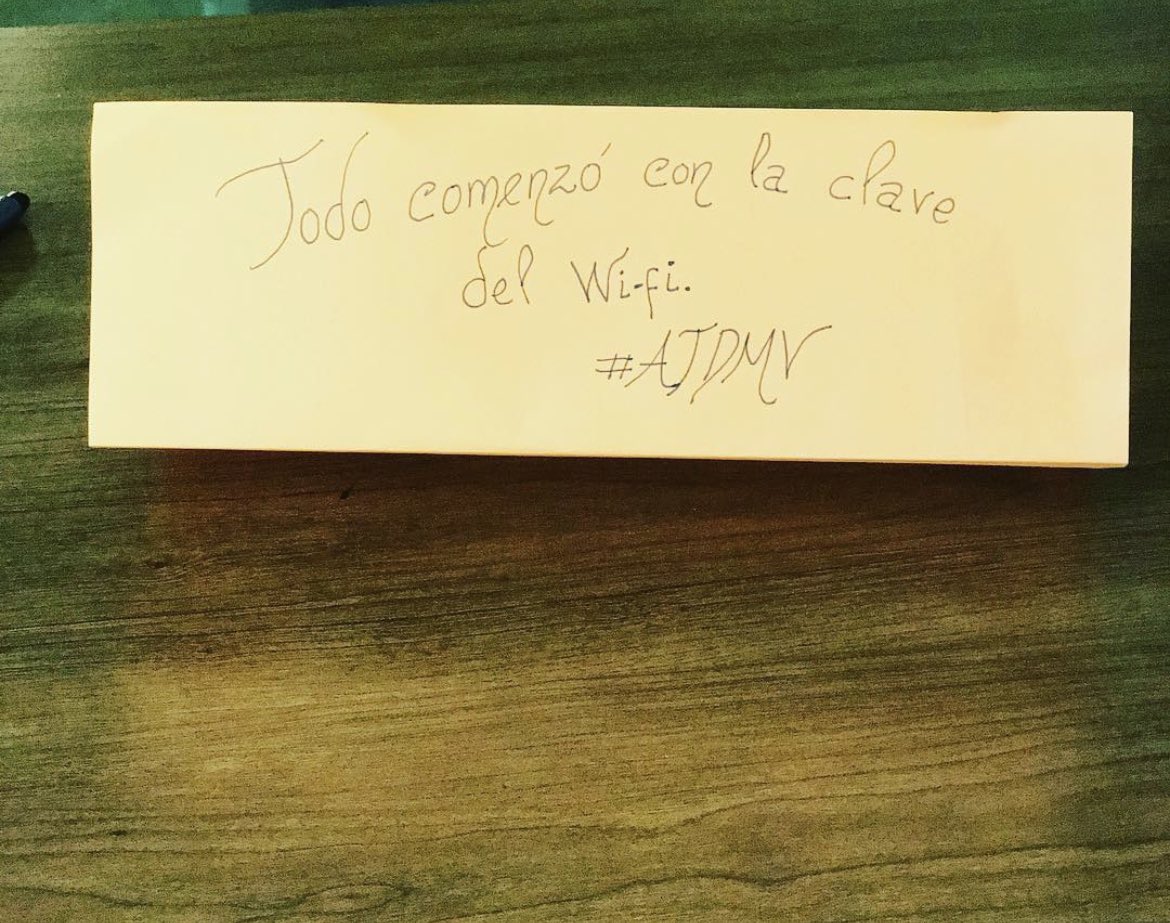 Todo comenzó con la clave
del Wi-fi.
#AJDMV